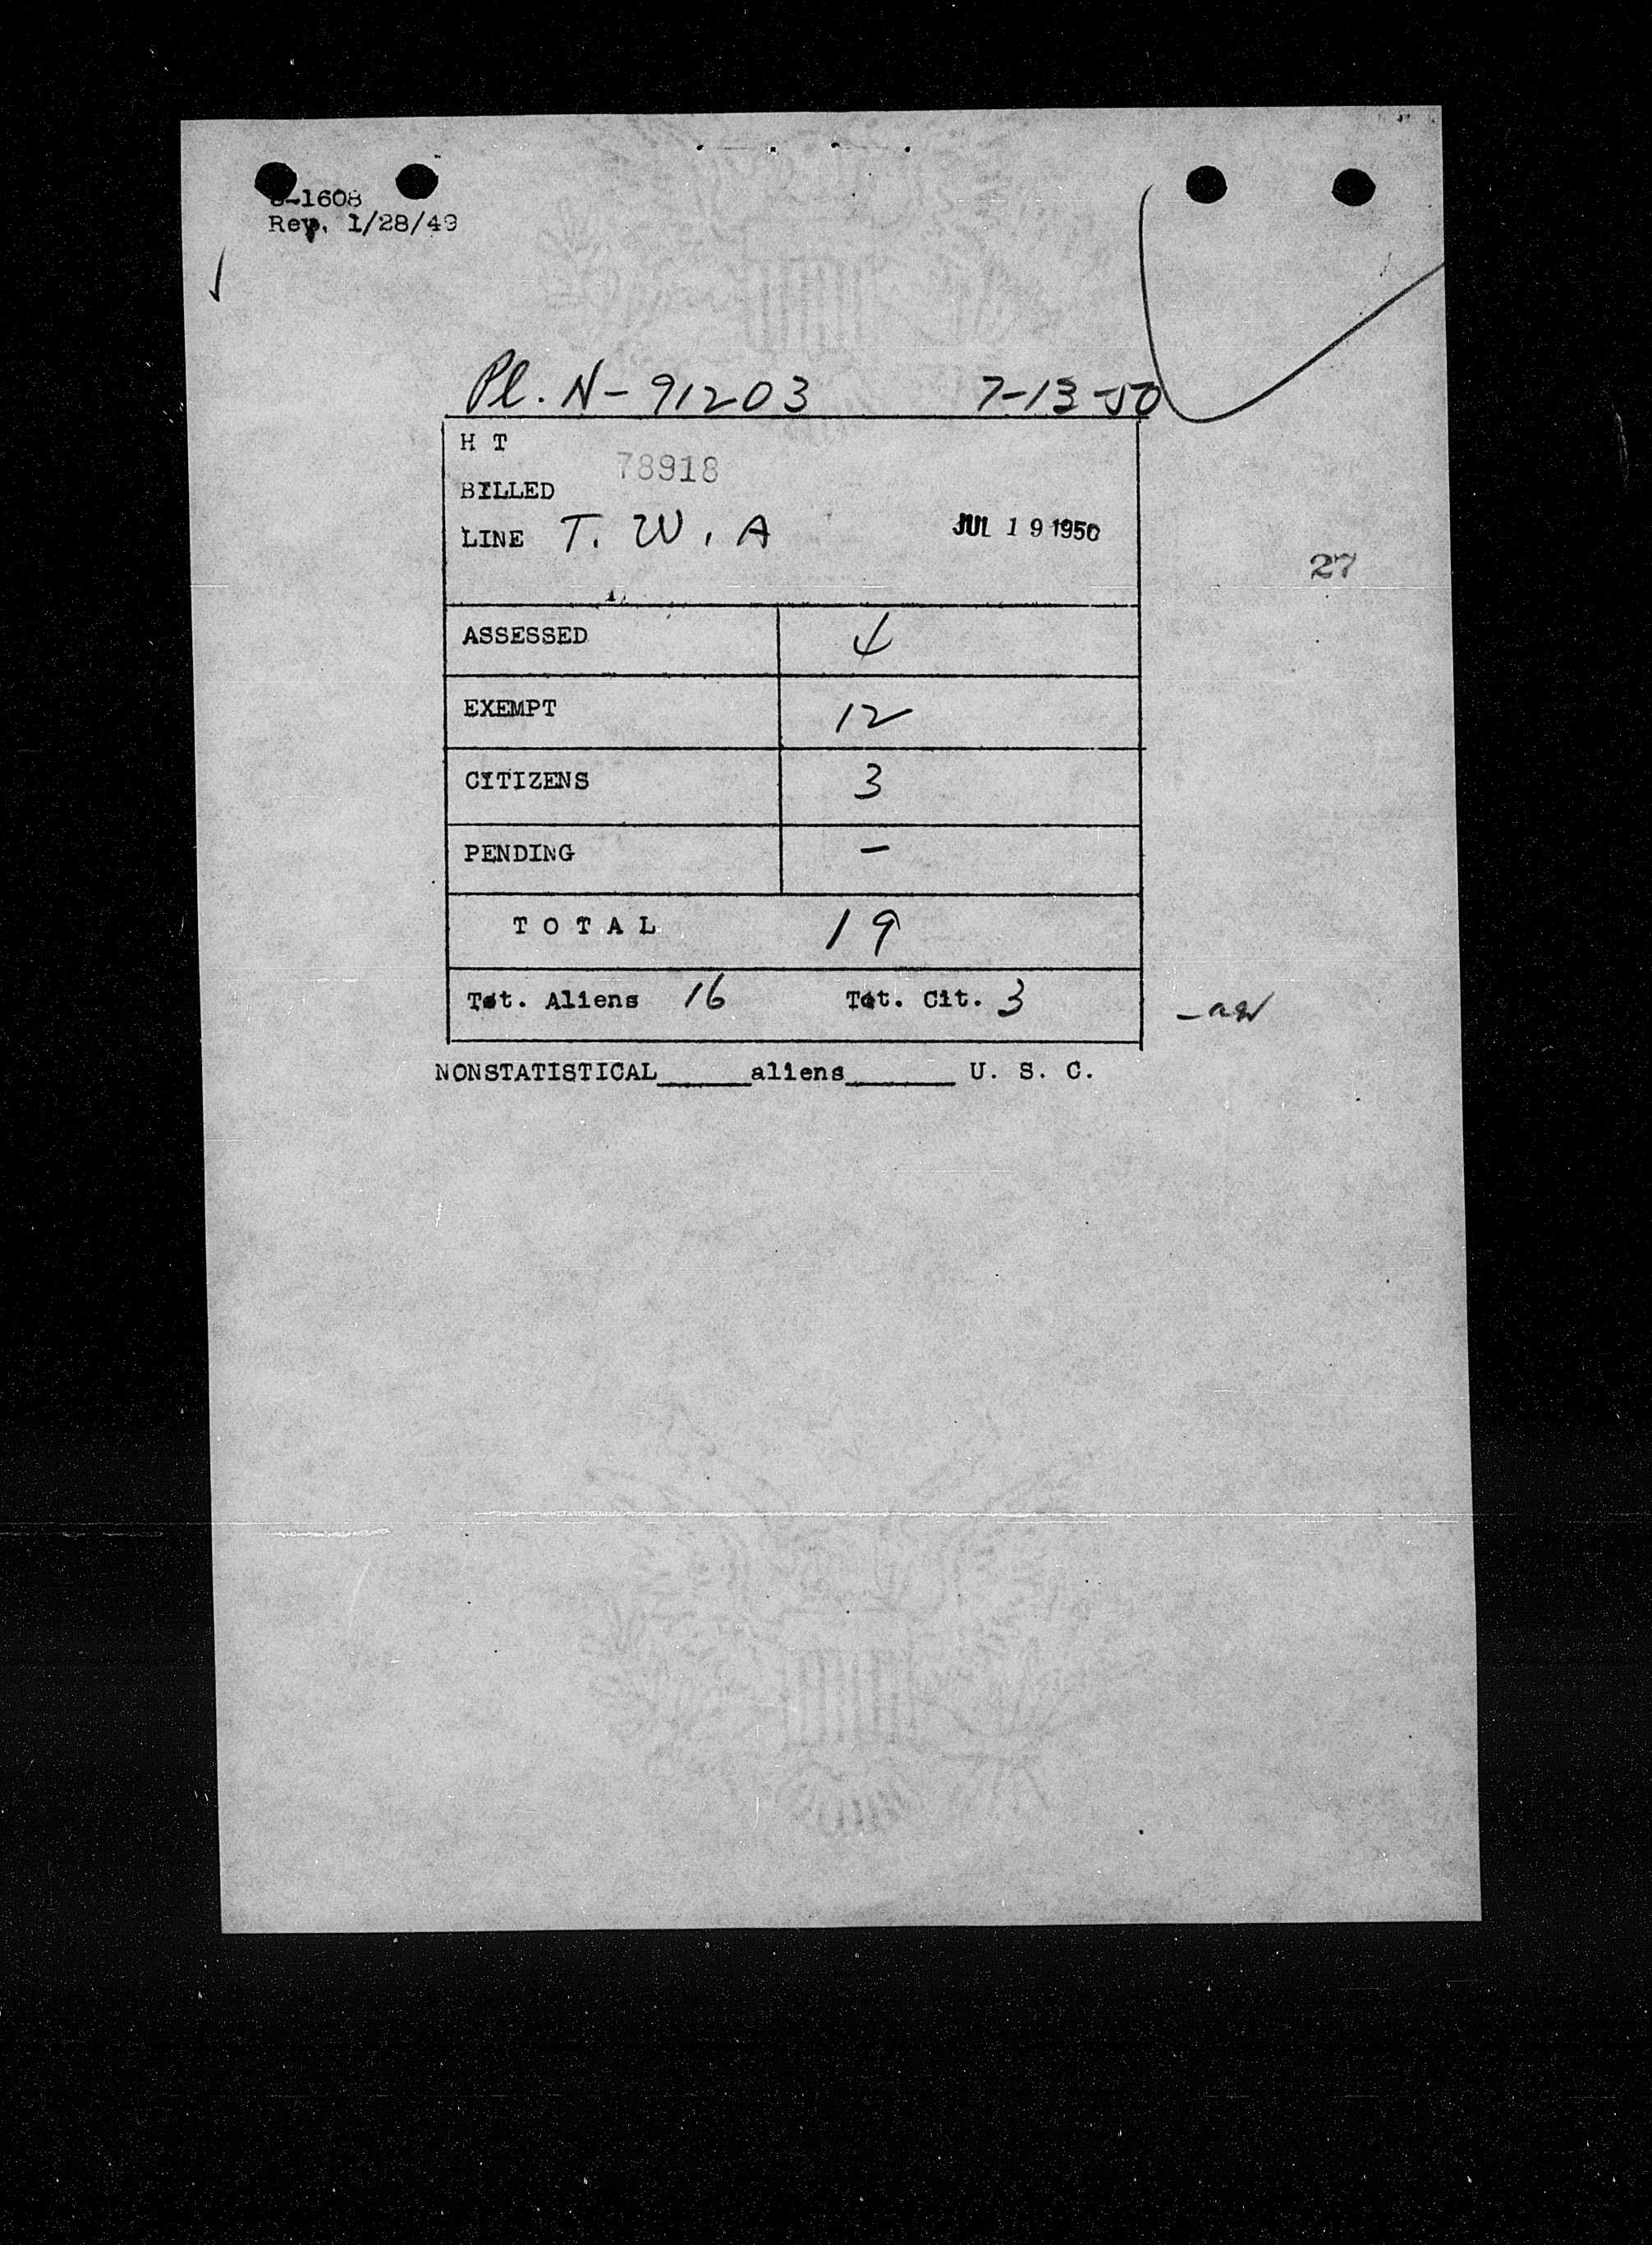 -1608
Rev. 1/28/49
Pl. N-91203 7-13-50
H T
78918
BILLED
LINE T. W. A JUL 19 1950
27
ASSESSED 4
EXEMPT 12
CITIZENS 3
PENDING -
TOTAL 19
Tot. Aliens 16 Tot. Cit. 3
NONSTATISTICAL______aliens_______ U. S. C.